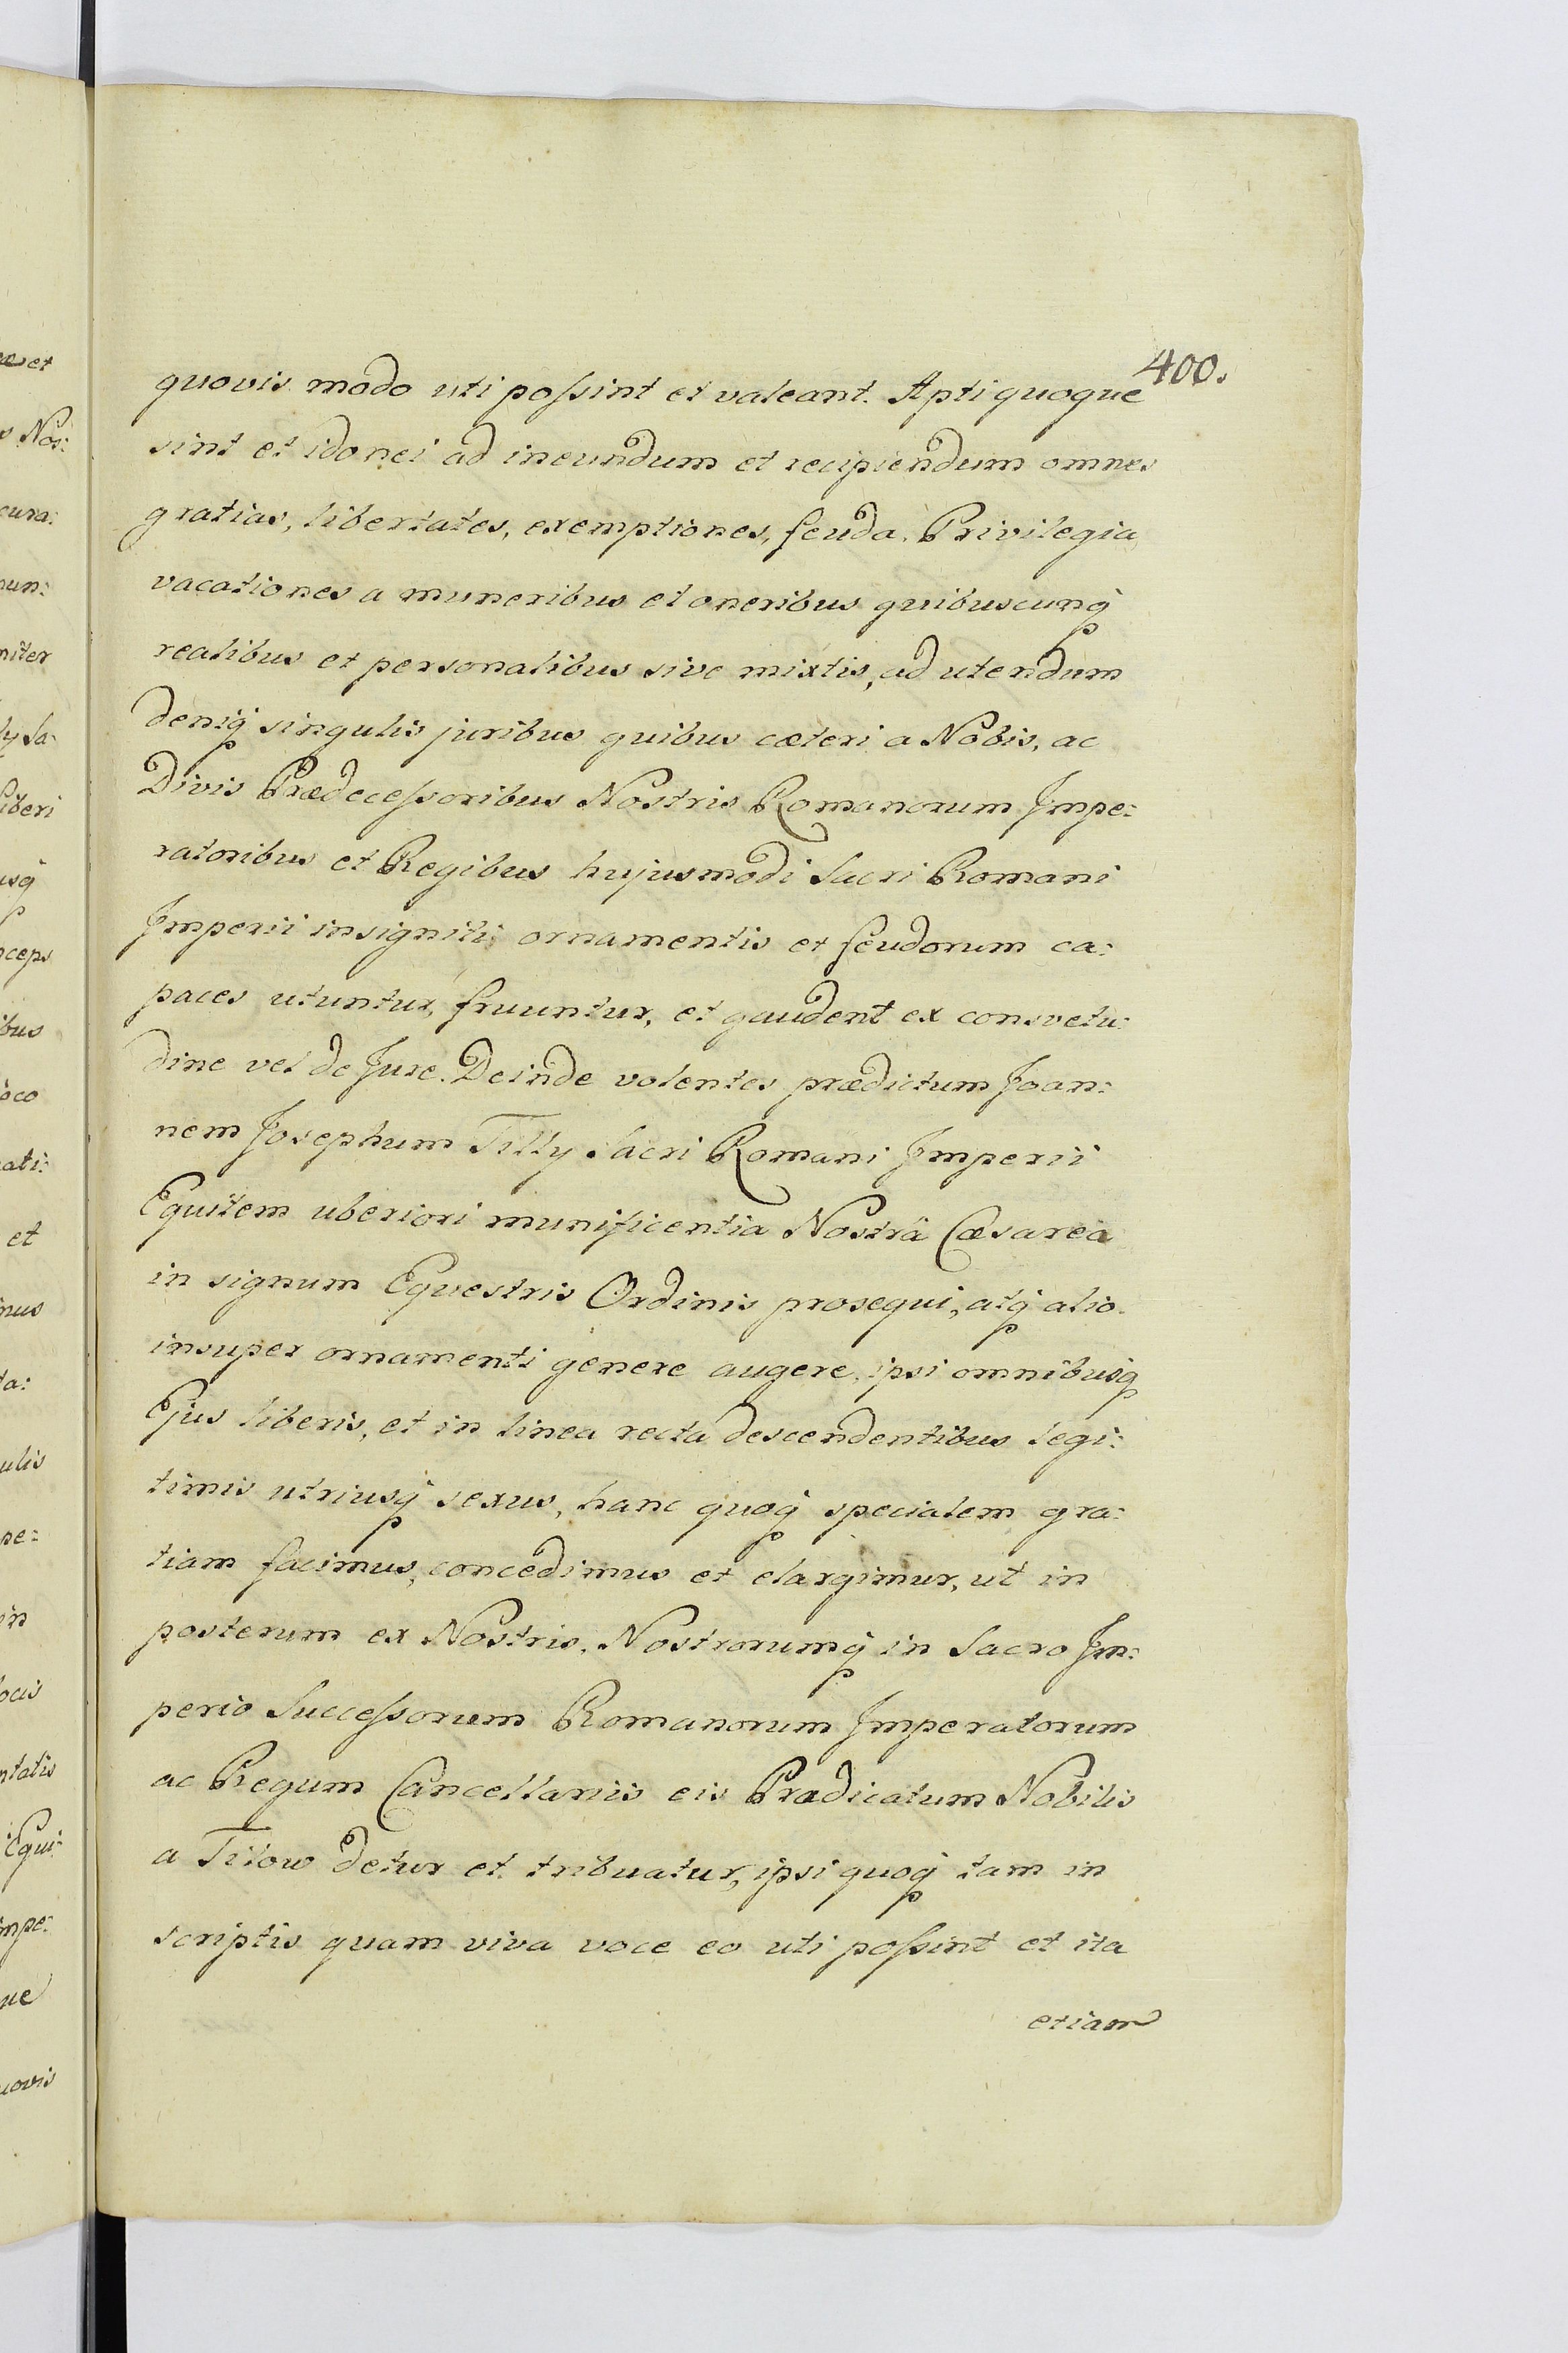 400.
quovis modo uti poſsint et valeant. Apti quoque
sint et idonei ad ineundum et recipiendum omnes
gratias, libertates, exemptiones, feuda, Privilegia,
vacationes a muneribus et oneribus quibuscunq́
realibus et personalibus sive mixtis, ad utendum
deniq́ singulis juribus quibus cæteri a Nobis, ac
Divis Prædeceſsoribus Nostris Romanorum Impe:
ratoribus et Regibus hujusmodi Sacri Romani
Imperii insigniti ornamentis et feudorum ca:
paces utuntur, fruuntur, et gaudent ex consvetu:
dine vel de Jure. Deinde volentes prædictum Joan:
nem Josephum Tilly Sacri Romani Imperii
Equitem uberiori munificentia Nostrâ Cæsarea
in signum Equestris Ordinis prosequi, atq́ alio
insuper ornamenti genere augere, ipsi omnibusq́
Ejus liberis, et in linea recta descendentibus legi:
timis utriusq́ sexus, hanc quoq́ specialem gra:
tiam facimus, concedimus et elargimur, ut in
posterum ex Nostris, Nostrorumq́ in Sacro Im:
perio Succeſsorum Romanorum Imperatorum
ac Regum Cancellariis eis Prædicatum Nobilis
a Tilow detur et tribuatur, ipsi quoq́ tam in
scriptis quam viva voce eo uti poſsint et ita
etiam